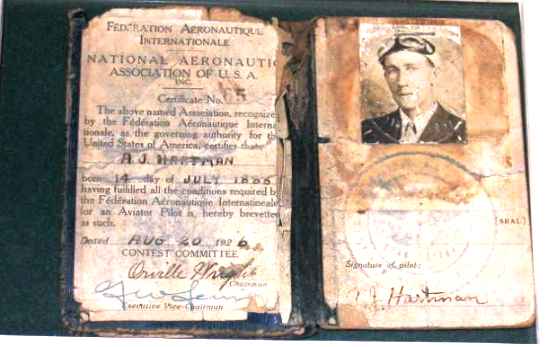 FÉDÉRATION AÉRONAUTIQUE
INTERNATIONALE
NATIONAL AERONAUTIC
ASSOCIATION OF U.S.A.
INC.
Certificate No. 65
The above named Association, recognized
by the Fédération Aéronautique Interna-
tionale, as the governing authority for the
United States of America, certifies that
A. J. HARTMAN
born 14 day of JULY
having fulfilled all the conditions required by
the Fédération Aéronautique Internationale
for an Aviator Pilot is hereby brevetted
as such.
Dated AUG 20 1926
CONTEST COMMITTEE
Orville Wright
Chairman
Executive Vice-Chairman
(SEAL)
Signature of pilot:
A J Hartman